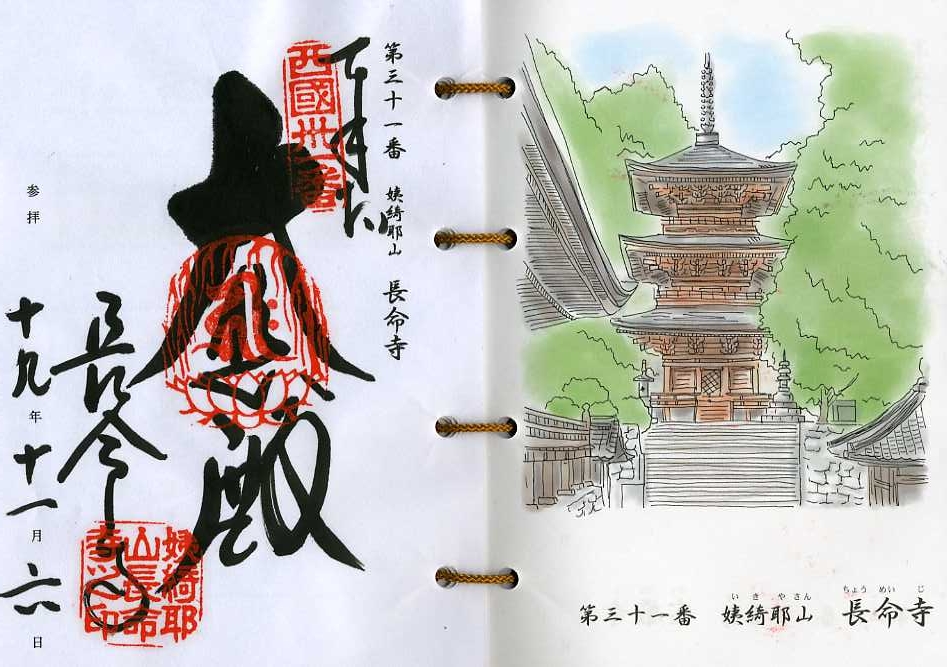 第三十一番 姨綺耶山 長命寺
奉拝
西國卅一番
大悲殿
長命寺
姨綺耶
山長命
寺之印
参拝
十九年十一月六日
いきやさん ちょうめいじ
第三十一番 姨綺耶山 長命寺